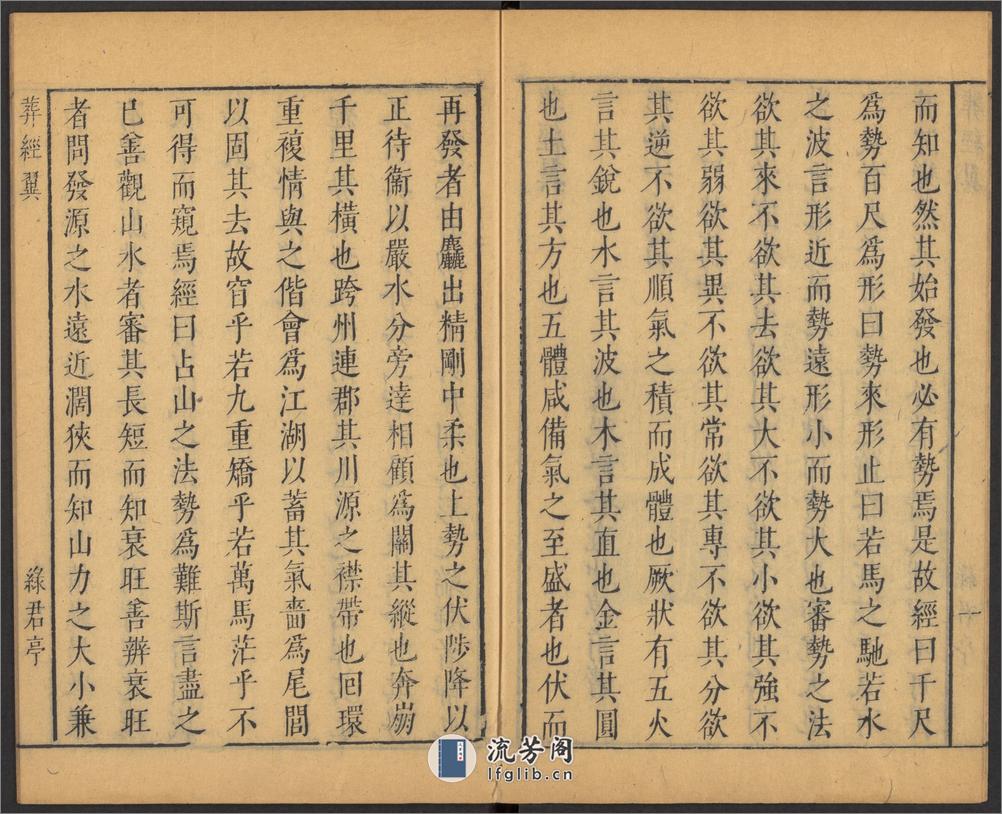 而知也然其始發也必有勢焉是故經曰千尺
爲勢百尺爲形曰勢來形止曰若馬之馳若水
之波言形近而勢遠形小而勢大也審勢之法
欲其來不欲其去欲其大不欲其小欲其強不
欲其弱欲其異不欲其常欲其專不欲其分欲
其逆不欲其順氣之積而成體也厥狀有五火
言其銳也水言其波也木言其直也金言其圓
也土言其方也五體咸備氣之至盛者也伏而
再發者由麤出精剛中柔也上勢之伏陟降以
正待衛以嚴水分旁達相顧爲關其縱也奔崩
千里其橫也跨州連郡其川源之襟帶也囘環
重複情與之偕會爲江湖以蓄其氣嗇爲尾閭
以固其去故窅乎若九重矯乎若萬馬茫乎不
可得而窺焉經曰占山之法勢爲難斯言盡之
巳善觀山水者審其長短而知衰旺善辨衰旺
者問發源之水遠近濶狹而知山力之大小兼
葬經翼
綠君亭
流芳阁
lfglib.cn